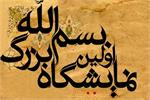 بسم الله
اولین
نمایشگاه بزرگ